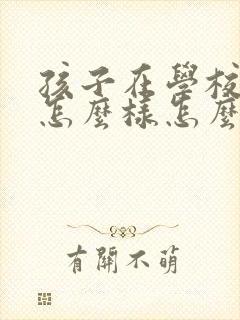 孩子在學校
怎麼樣怎麼
有關不萌